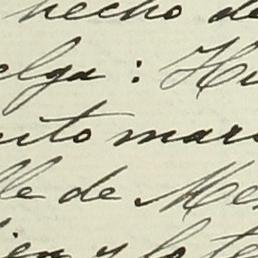 hecho de
elga: Hu
uito mar
lle de Me